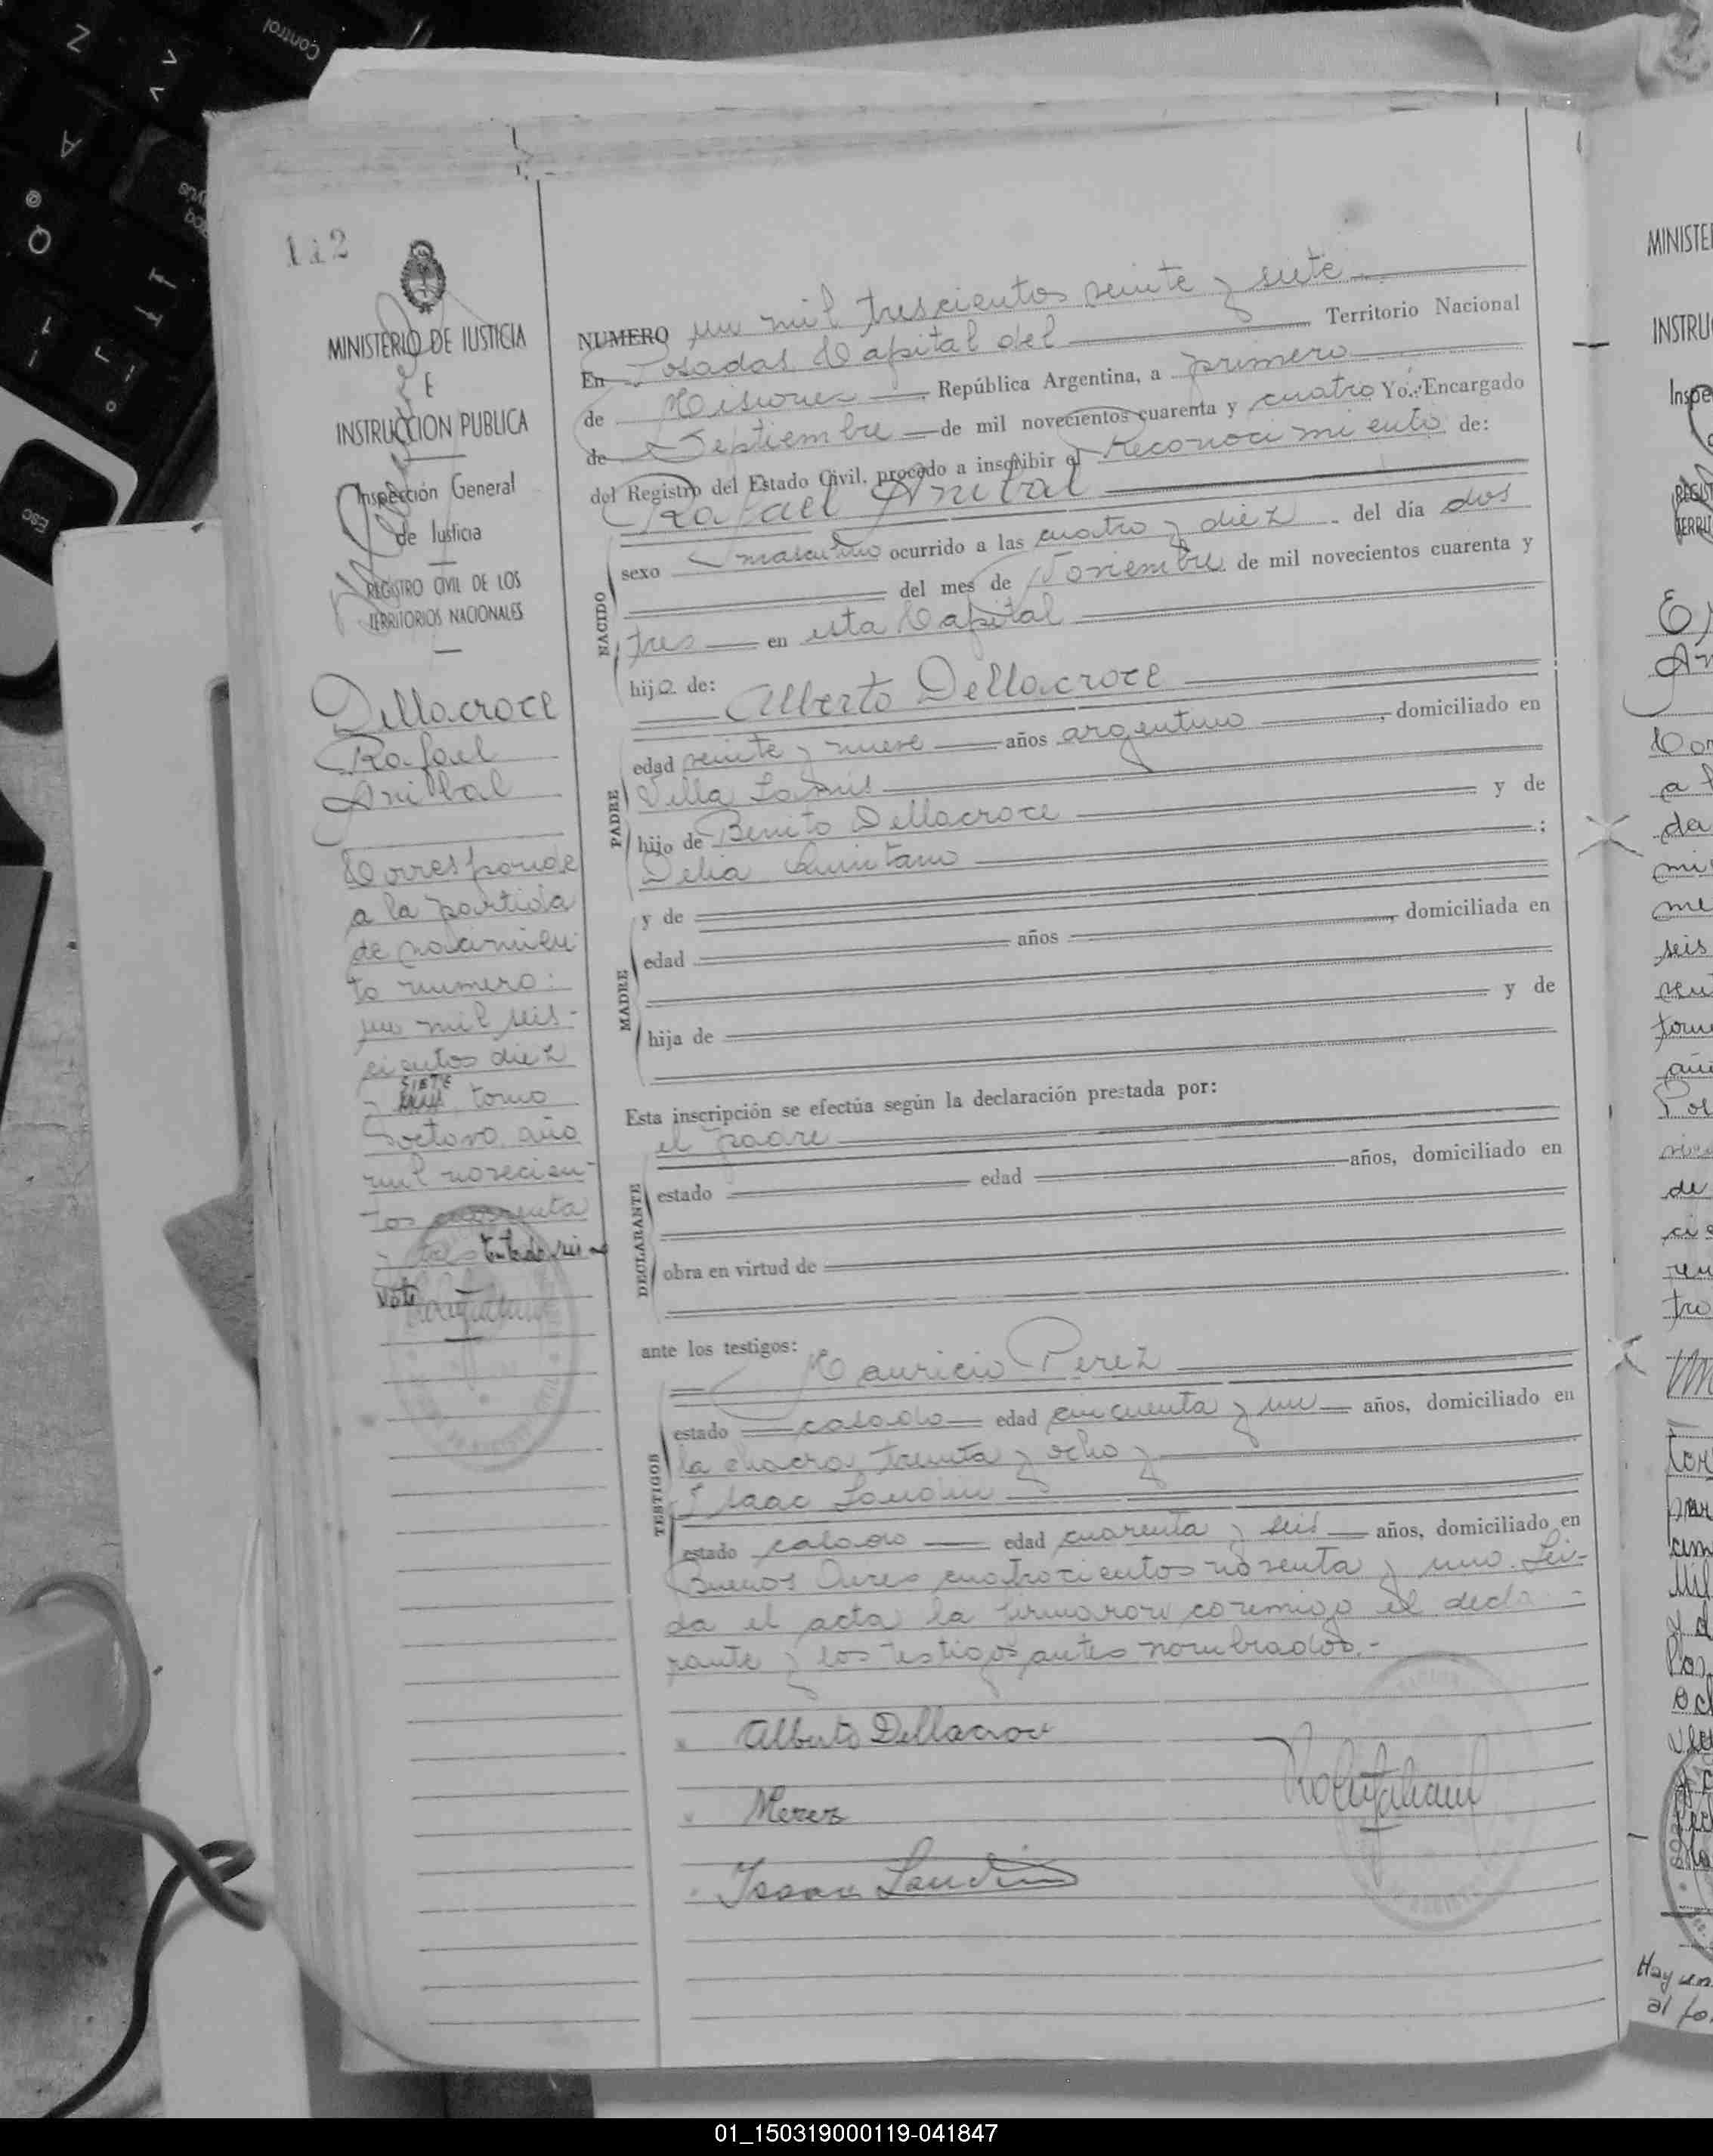 112
MINISTERIO DE JUSTICIA
E
INSTRUCCION PUBLICA
Inspección General
de Justicia
REGISTRO CIVIL DE LOS
TERRITORIOS NACIONALES
Dellacroce
Rafael
Anibal
Corresponde
a la partida
de nacimien
to numero:
un mil seis-
cientos diez
SIETE
tomo
octavo año
mil novecien-
tos cuarenta
tres
NUMERO un mil trescientos veinte y siete
En Posadas Capital del Territorio Nacional
de Misiones República Argentina, a primero
de Septiembre de mil novecientos cuarenta y cuatro Yo, Encargado
del Registro del Estado Civil, procedo a inscribir el reconocimiento de:
Rafael Anibal
NACIDO
sexo masculino ocurrido a las cuatro y diez del día dos
del mes de Noviembre de mil novecientos cuarenta y
tres en esta Capital
hijo de: Alberto Dellacroce
PADRE
edad veinte y nueve años argentino, domiciliado en
Villa Lanus
hijo de Benito Dellacroce y de
Delia Quintana;
MADRE
y de
edad años, domiciliada en
hija de y de
Esta inscripción se efectúa según la declaración prestada por:
el padre
DECLARANTE
estado edad años, domiciliado en
obra en virtud de
ante los testigos:
Mauricio Perez
TESTIGOS
estado casado edad cincuenta y un años, domiciliado en
la chacra treinta y ocho y
Isaac Landin
estado casado edad cuarenta y seis años, domiciliado en
Buenos Aires cuatrocientos noventa y uno. Lei-
da el acta la firmaron conmigo el decla
rante y los testigos antes nombrados.-
Alberto Dellacroce
Isaac Landin
MINISTE
INSTRU
Inspe
REGIST
TERRIT
An
a l
da
mi
me
seis
de
tre
Hay un
al fo
01_150319000119-041847
Control
Z
A
Q
Esc